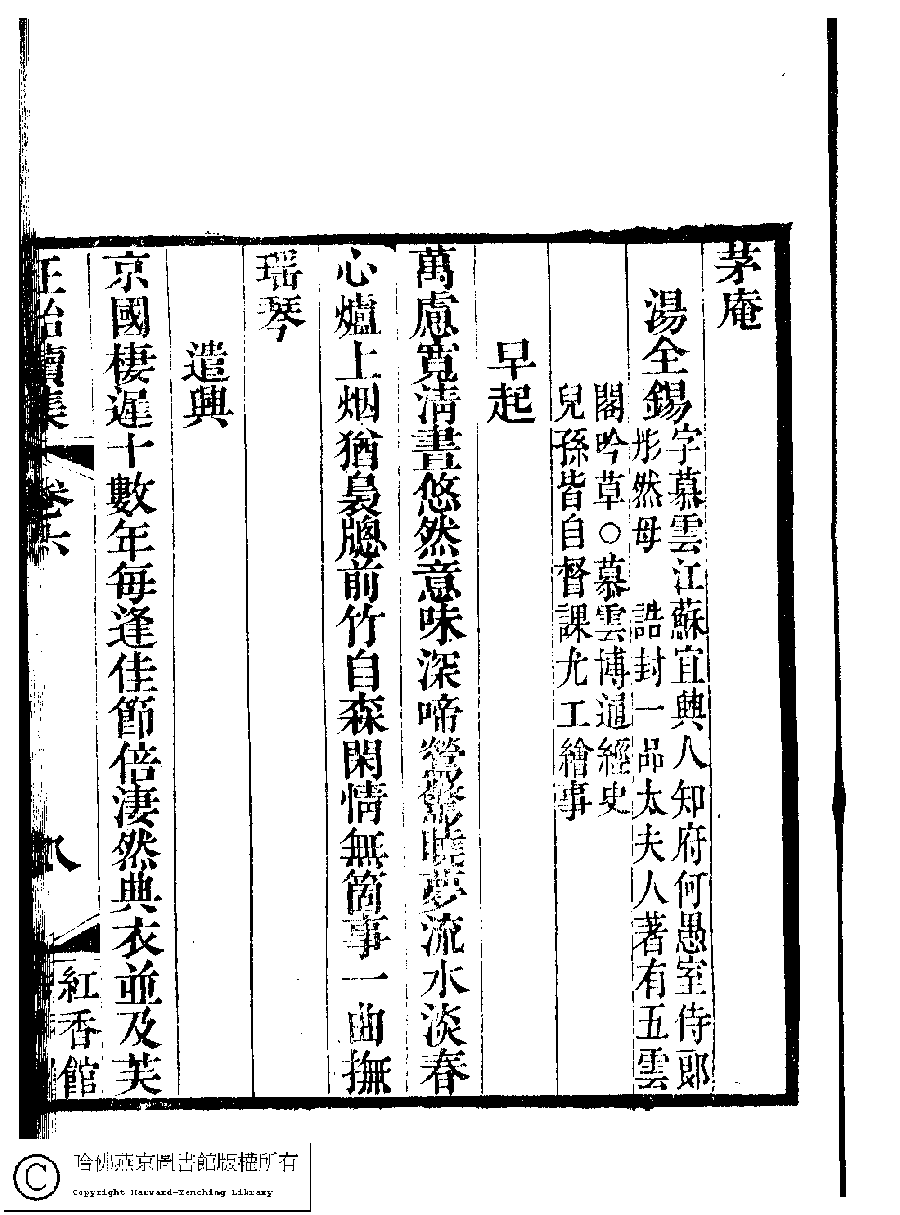 茅庵
湯全錫
字慕雲江蘇宜興人知府何愚室侍郎
彤然母　誥封一品太夫人著有五雲
閣吟草○慕雲博通經史
兒孫皆自督課尤工繪事
早起
萬慮寬清晝悠然意味深啼鶯驚曉夢流水淡春
心爐上烟猶裊牕前竹自森閑情無箇事一曲撫
瑶琴
遣興
京國棲遲十數年每逢佳節倍淒然典衣並及芙
正始續集
卷六
八
紅香館
哈佛燕京圖書館版權所有
Copyright Harvard-Yenching Library